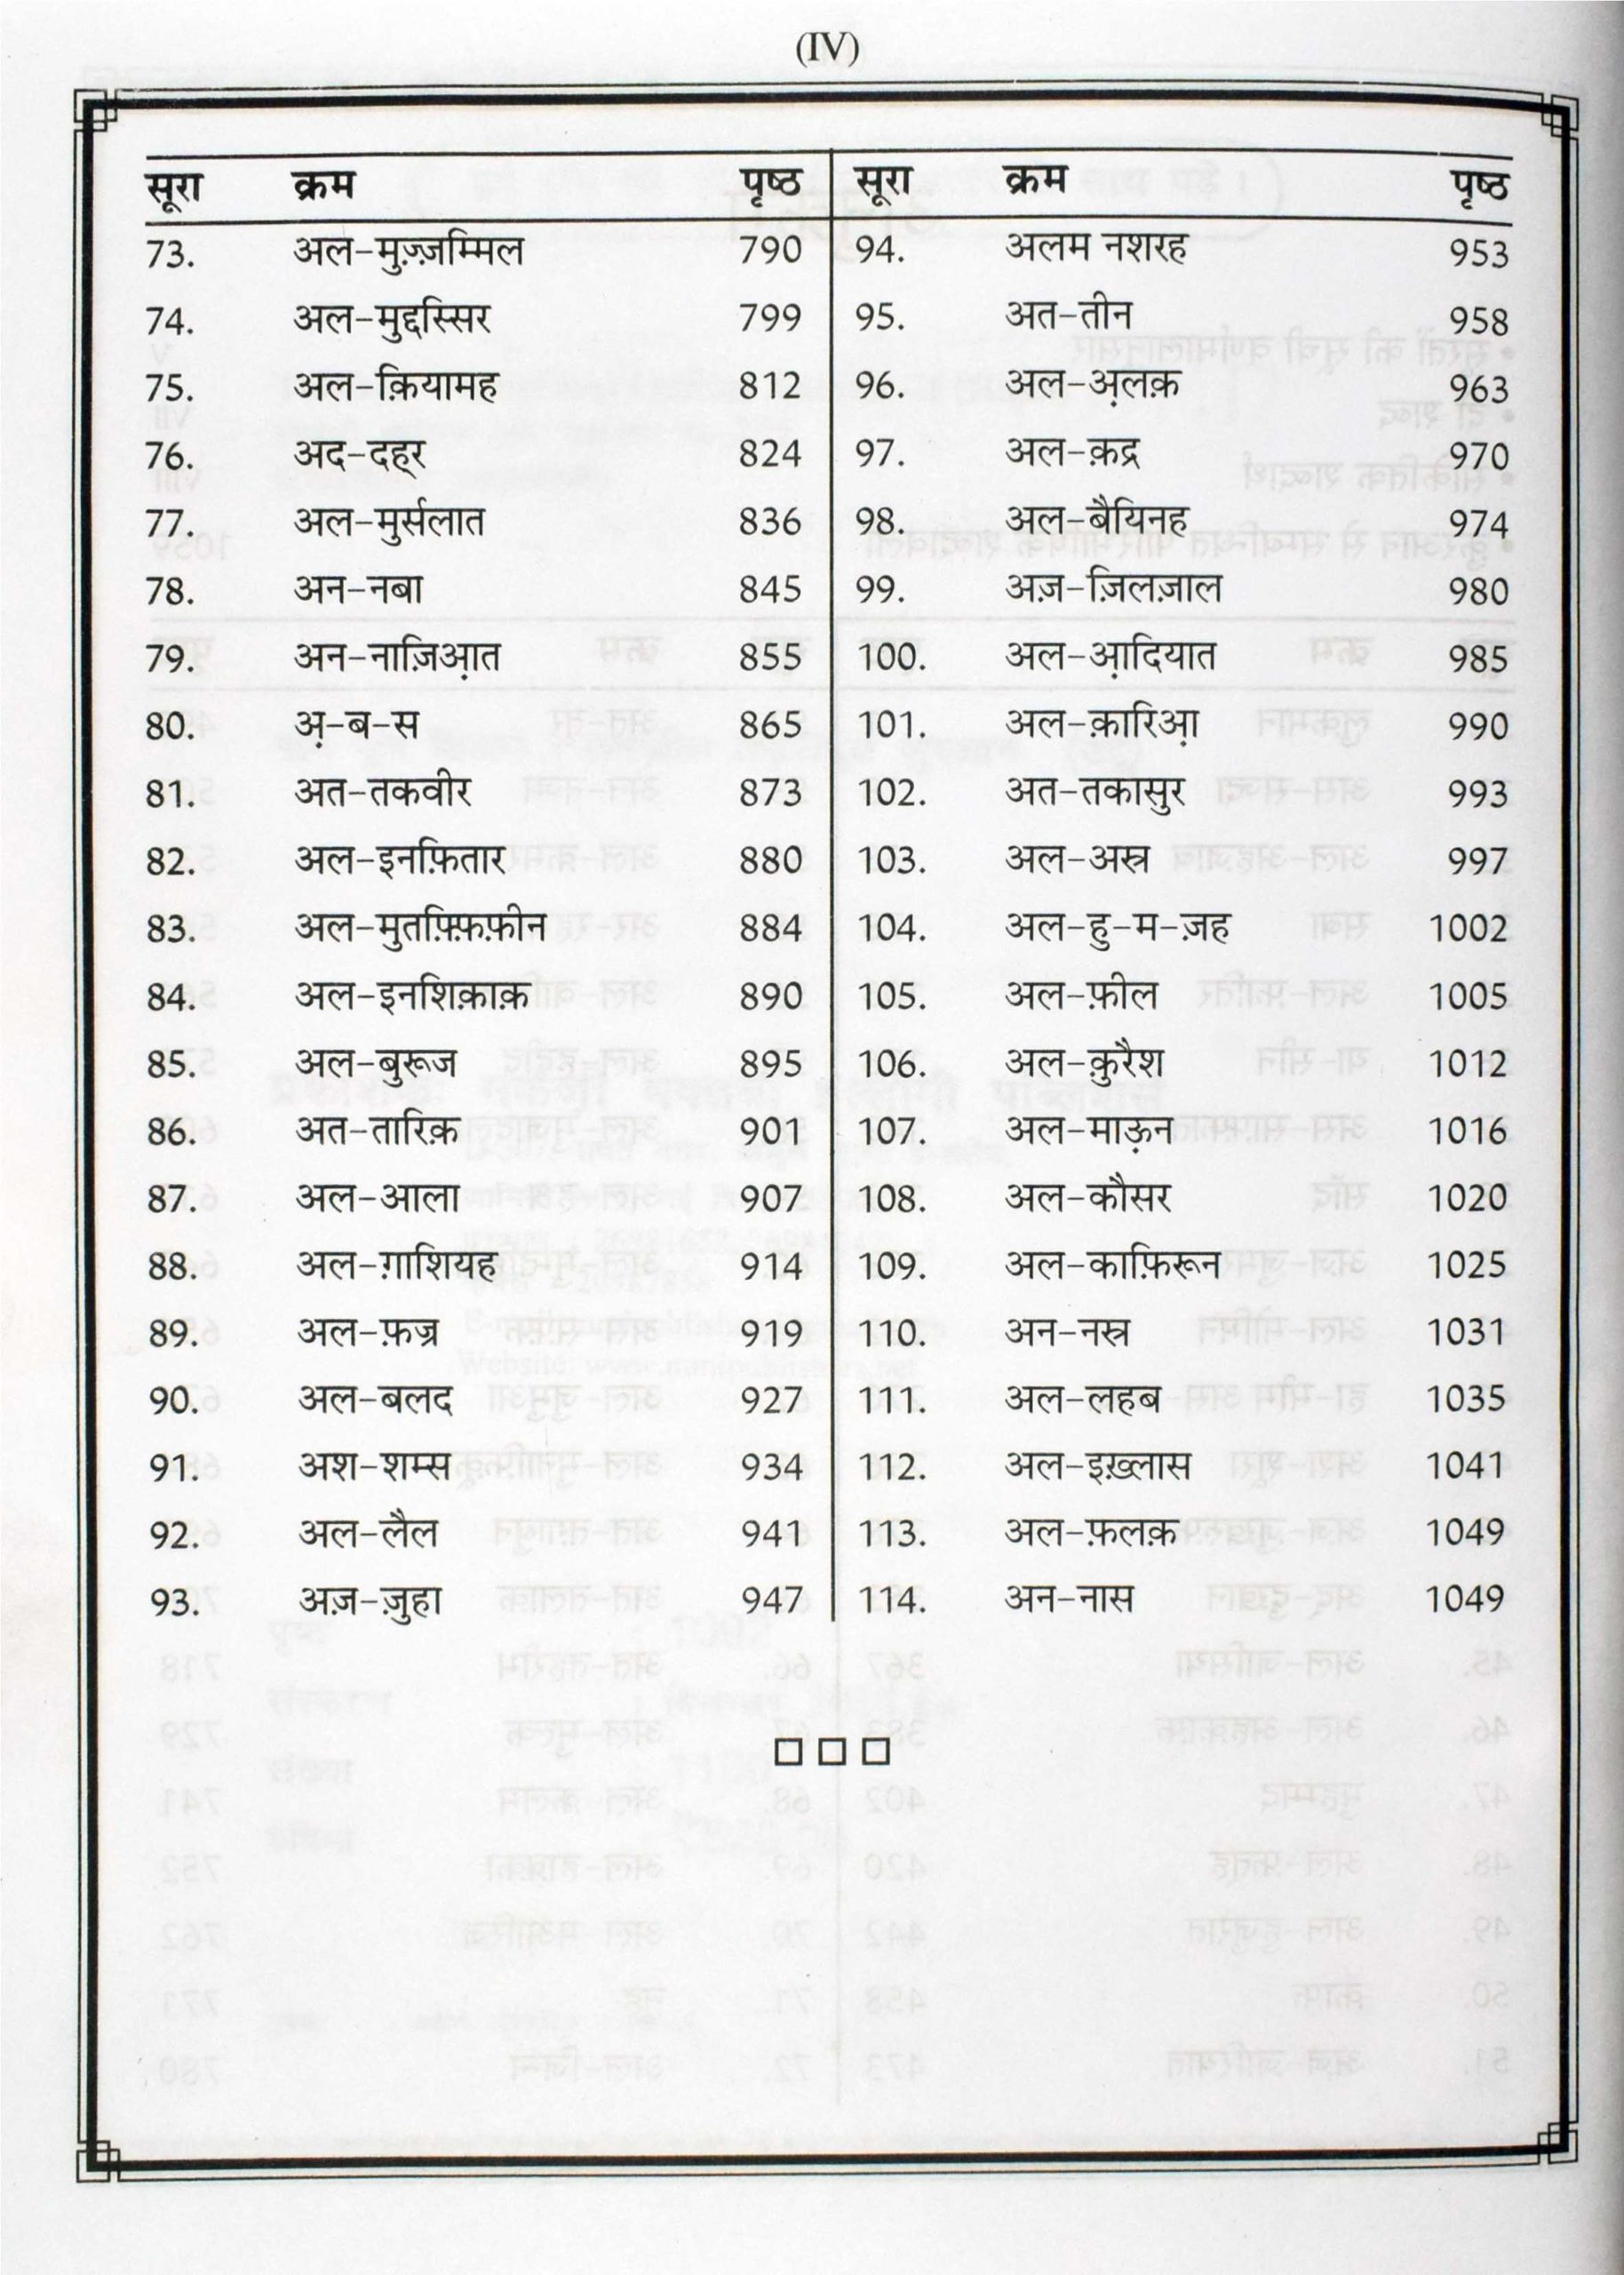 (IV)
सूरा क्रम पृष्ठ सूरा क्रम पृष्ठ
73. अल-मुज़्ज़म्मिल 790 94. अलम नशरह 953
74. अल-मुद्दस्सिर 799 95. अत-तीन 958
75. अल-क़ियामह 812 96. अल-अ़लक़ 963
76. अद-दह्र 824 97. अल-क़द्र 970
77. अल-मुर्सलात 836 98. अल-बैयिनह 974
78. अन-नबा 845 99. अज़-ज़िलज़ाल 980
79. अन-नाज़िआ़त 855 100. अल-आ़दियात 985
80. अ़-ब-स 865 101. अल-क़ारिआ़ 990
81. अत-तकवीर 873 102. अत-तकासुर 993
82. अल-इनफ़ितार 880 103. अल-अस्र 997
83. अल-मुतफ़्फ़िफ़ीन 884 104. अल-हु-म-ज़ह 1002
84. अल-इनशिक़ाक़ 890 105. अल-फ़ील 1005
85. अल-बुरूज 895 106. अल-क़ुरैश 1012
86. अत-तारिक़ 901 107. अल-माऊ़न 1016
87. अल-आला 907 108. अल-कौसर 1020
88. अल-ग़ाशियह 914 109. अल-काफ़िरून 1025
89. अल-फ़ज्र 919 110. अन-नस्र 1031
90. अल-बलद 927 111. अल-लहब 1035
91. अश-शम्स 934 112. अल-इख़्लास 1041
92. अल-लैल 941 113. अल-फ़लक़ 1049
93. अज़-ज़ुहा 947 114. अन-नास 1049